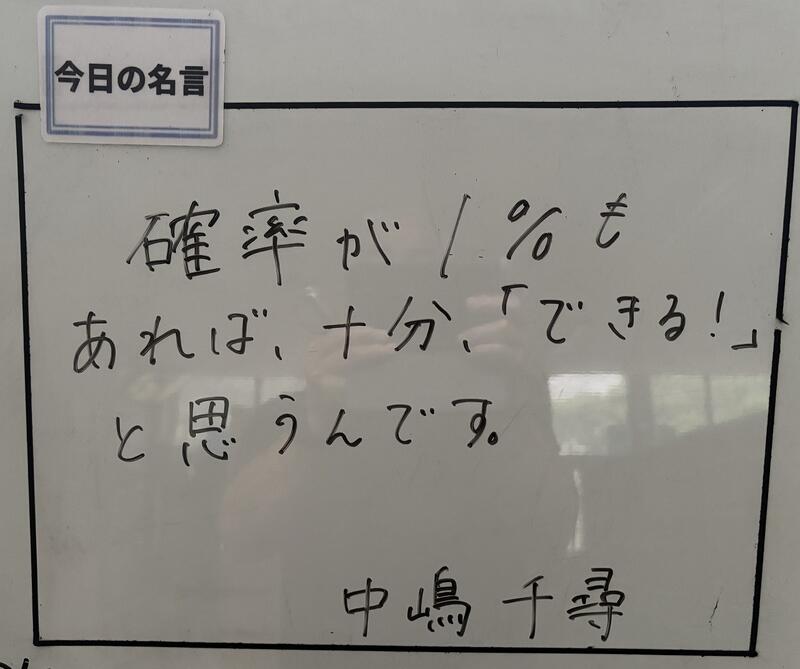 今日の名言
確率が1%も
あれば、十分、「できる!」
と思うんです。
中嶋千尋